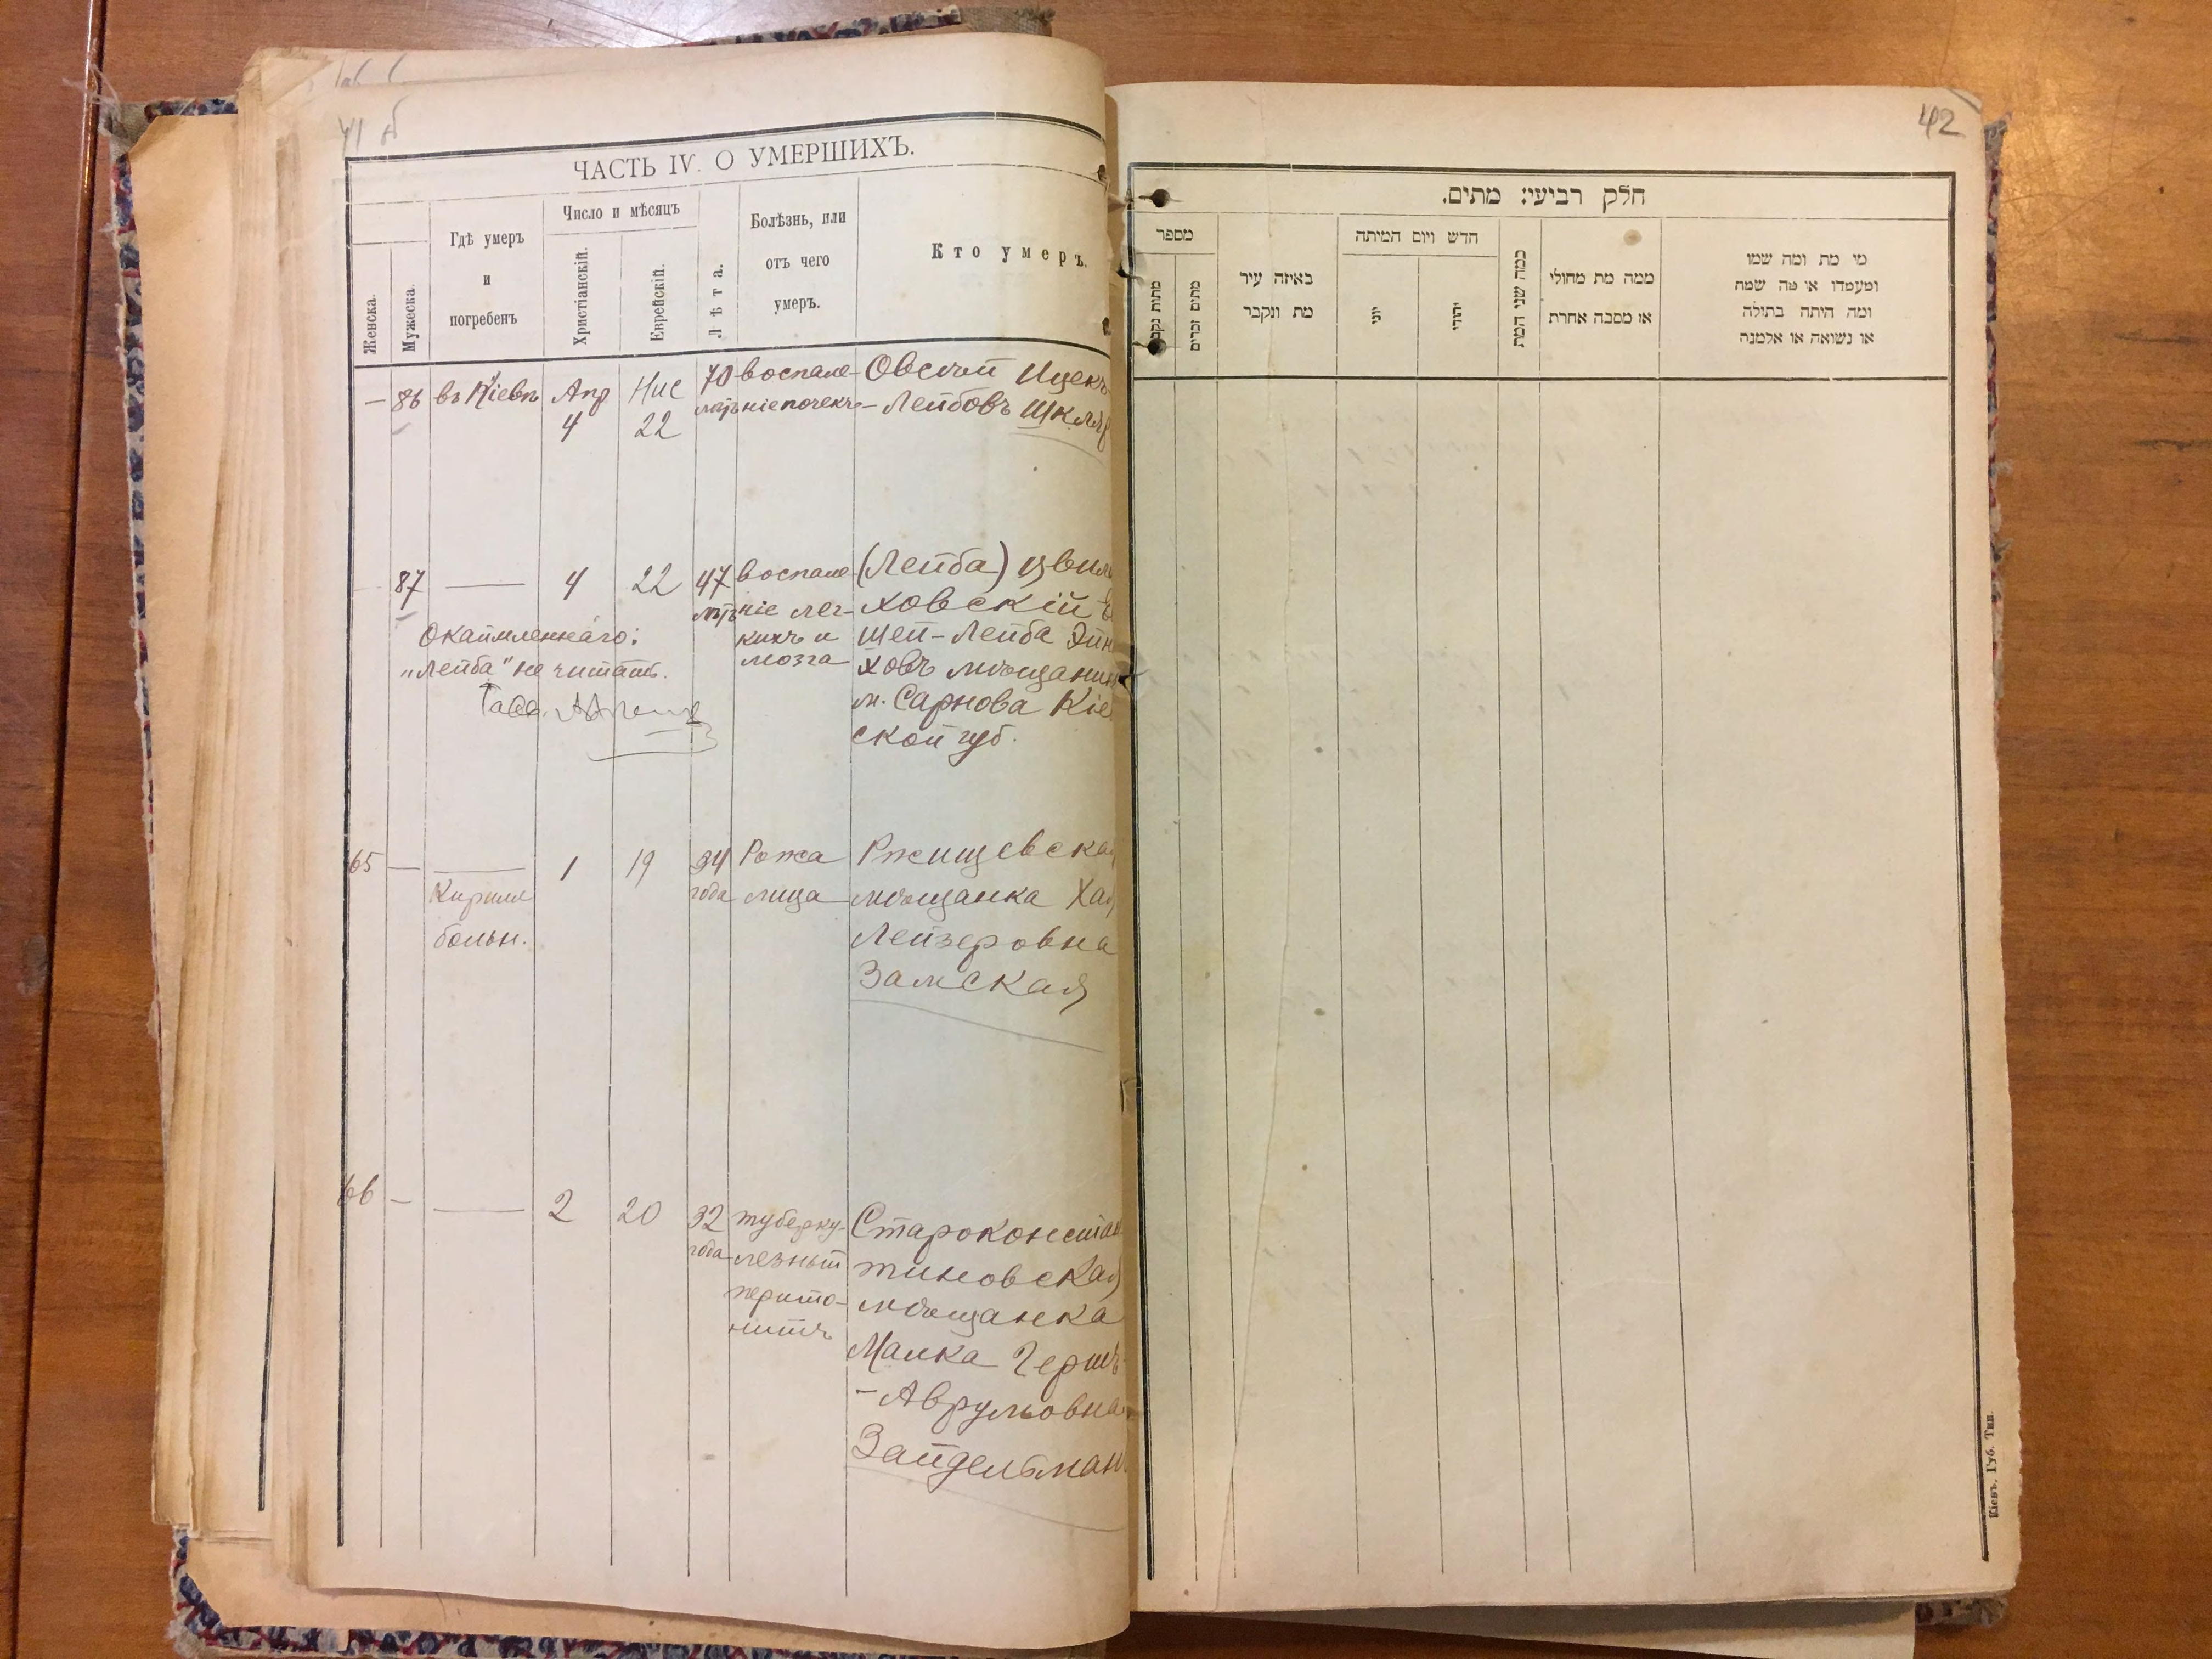 41 б
ЧАСТЬ IV. О УМЕРШИХЪ.
Женска.
Мужеска.
Гдѣ умеръ
и
погребенъ
Число и мѣсяцъ
Христіанскій.
Еврейскій.
Лѣта.
Болѣзнь, или
отъ чего
умеръ.
Кто умеръ.
— 86 въ Кіевѣ Апр 4 Нис 22 70
воспале-
ніе почекъ
Овсѣй Ицекъ
-Лейбовъ Шкляр
87 — 4 22 47
воспале
ніе лег-
кихъ и
мозга
(Лейба) Цвили
ховскій
Шей-Лейба
ховъ мѣщанин
м. Сарнова Кіе
ской губ.
Окаймленнаго:
„Лейба" не читать.
65 — — 1 19 34
года
Кирилл
больн.
Рожа
лица
Ржищевская
мѣщанка Хая
Лейзеровна
Замская
66 — — 2 20 32
года
туберку-
лезный
перито-
нитъ
Староконстан
тиновская
мѣщанка
Малка Гершъ
-Аврумовна
Зайдельман
42
חלק רביעי: מתים.
מספר
מתות נקבות
מתים זכרים
באיזה עיר
מת ונקבר
חדש ויום המיתה
יוני
יהודי
כמה שני המת
ממה מת מחולי
או מסבה אחרת
מי מת ומה שמו
ומעמדו או מה שמה
ומה היתה בתולה
או נשואה או אלמנה
Кіевъ. Губ. Тип.